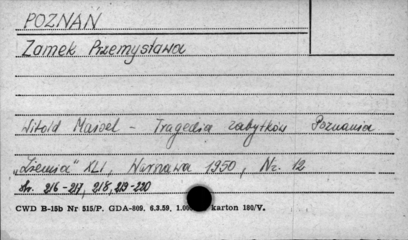 POZNAŃ
Zamek Przemysława
Witold Maisel - Tragedia zabytków Poznania
"Ziemia" XLI, Warszawa 1950, Nr. 12
str. 216-217, 218, 219-220
CWD B-15b Nr 515/P. GDA-809. 6.3.59. karton 180/V.